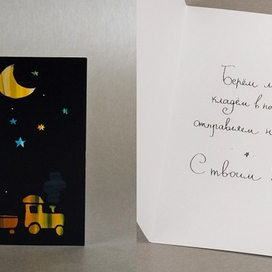 Берём
кладём в
отправляем
С твоим